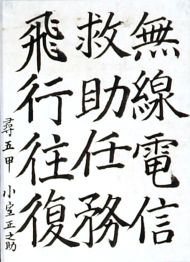 無線電信
救助任務
飛行往復
尋五甲 小室正之助